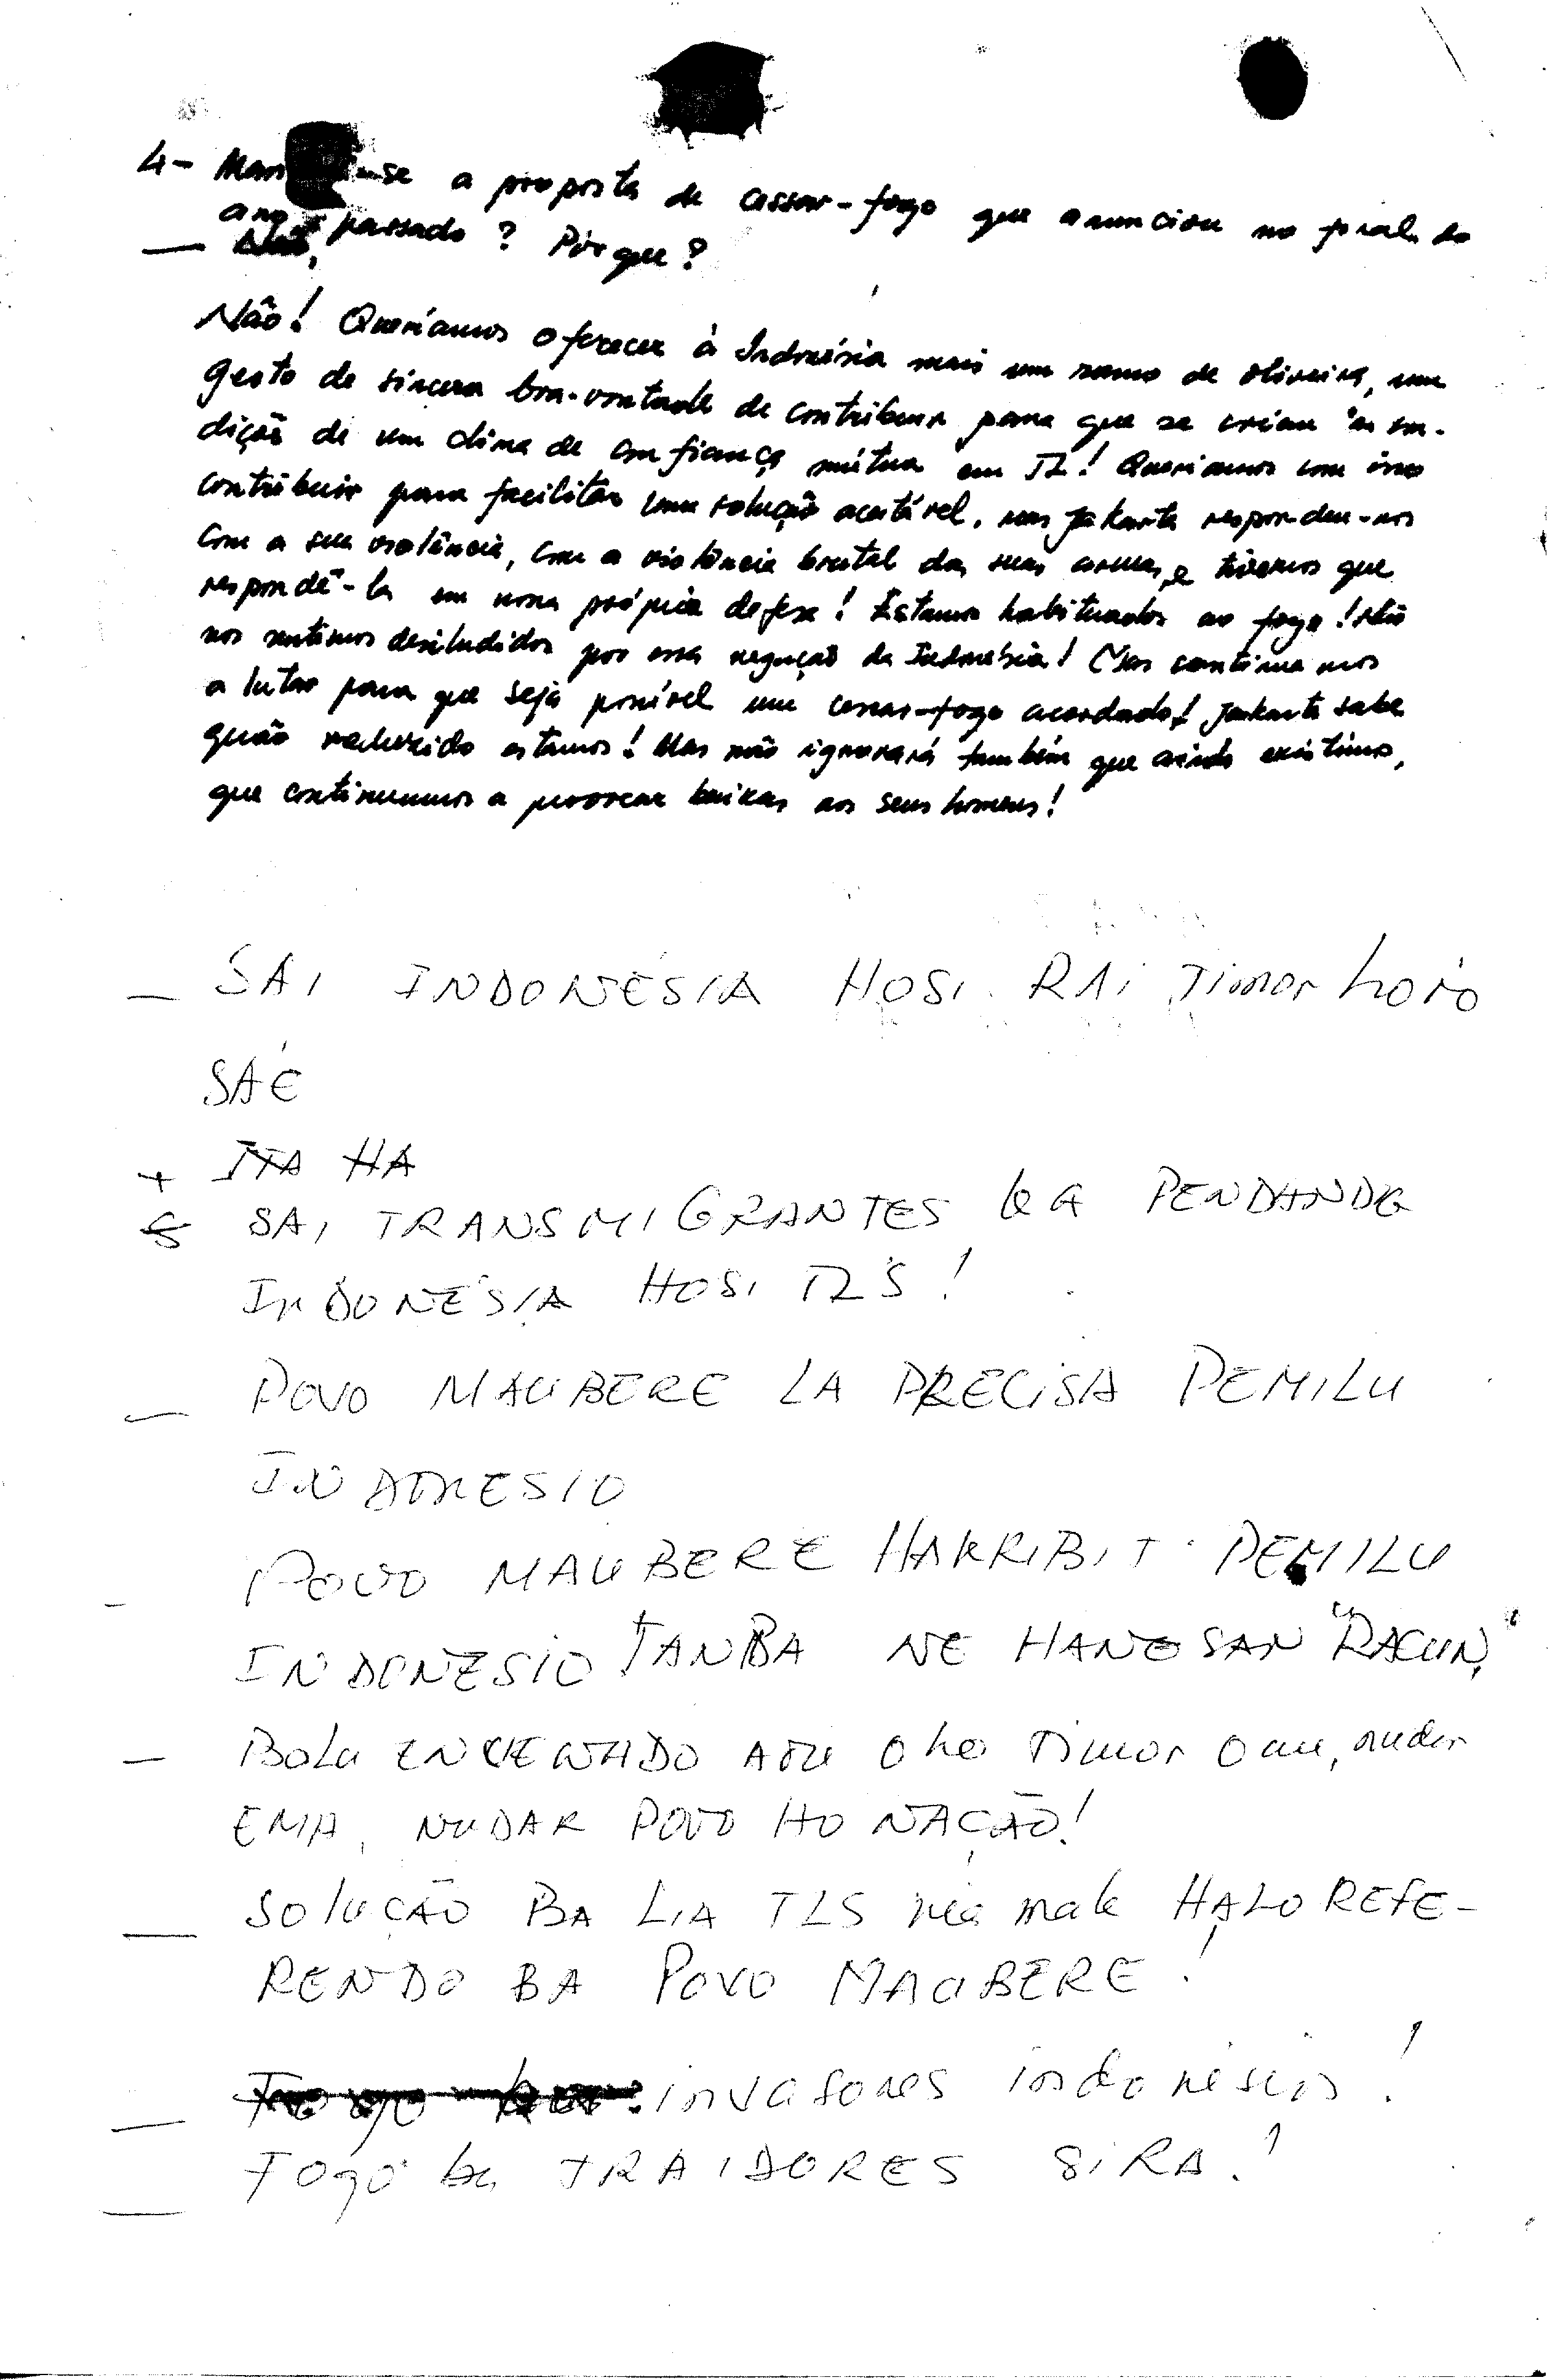 4- Man -se a proposta de cessar-fogo que anunciou no final do
ano passado ? Porque ?
— Não,
Não! Queríamos oferecer à Indonésia mais um ramo de oliveira, um
gesto de sincera boa-vontade de contribuir para que se criem as con-
dições de um clima de confiança mútua em TL! Queríamos com isso
contribuir para facilitar uma solução aceitável, mas Jakarta respondeu-nos
com a sua violência, com a violência brutal das suas armas, e tivemos que
respondê-la em nossa própria defesa! Estamos habituados ao fogo! Não
nos sentimos desiludidos por essa negação da Indonésia! Mas continuamos
a lutar para que seja possível um cessar-fogo acordado! Jakarta sabe
quão reduzido estamos! Mas não ignorará também que ainda existimos,
que continuamos a provocar baixas aos seus homens!
— SAI INDONÉSIA HOSI RAI Timor loro
SAE
+ ITA HA
SAI TRANSMIGRANTES PENDANDG
INDONÉSIA HOSI TLS!
— POVO MAUBERE LA PRECISA PEMILU
INDONESIO
- POVO MAUBERE HAKRIBIT PEMILU
INDONESIO TANBA NE HANESAN "RACUN"
— Bolu ENCENADO ATU oho Timor oan, nudar
EMA, NUDAR POVO HO NAÇÃO!
— SOLUÇÃO BA LIA TLS mak HALO REFE-
RENDO BA POVO MAUBERE!
— Fogo invasores indonésios!
— Fogo ba TRAIDORES SIRA!